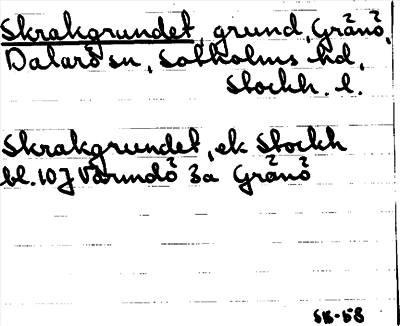 Skrakgrundet, grund, Gränö,
Dalarö sn, Sotholms hd,
Stockh. l.
Skrakgrundet, ek Stockh
bl. 107 Värmdö 3a Gränö
SB-58